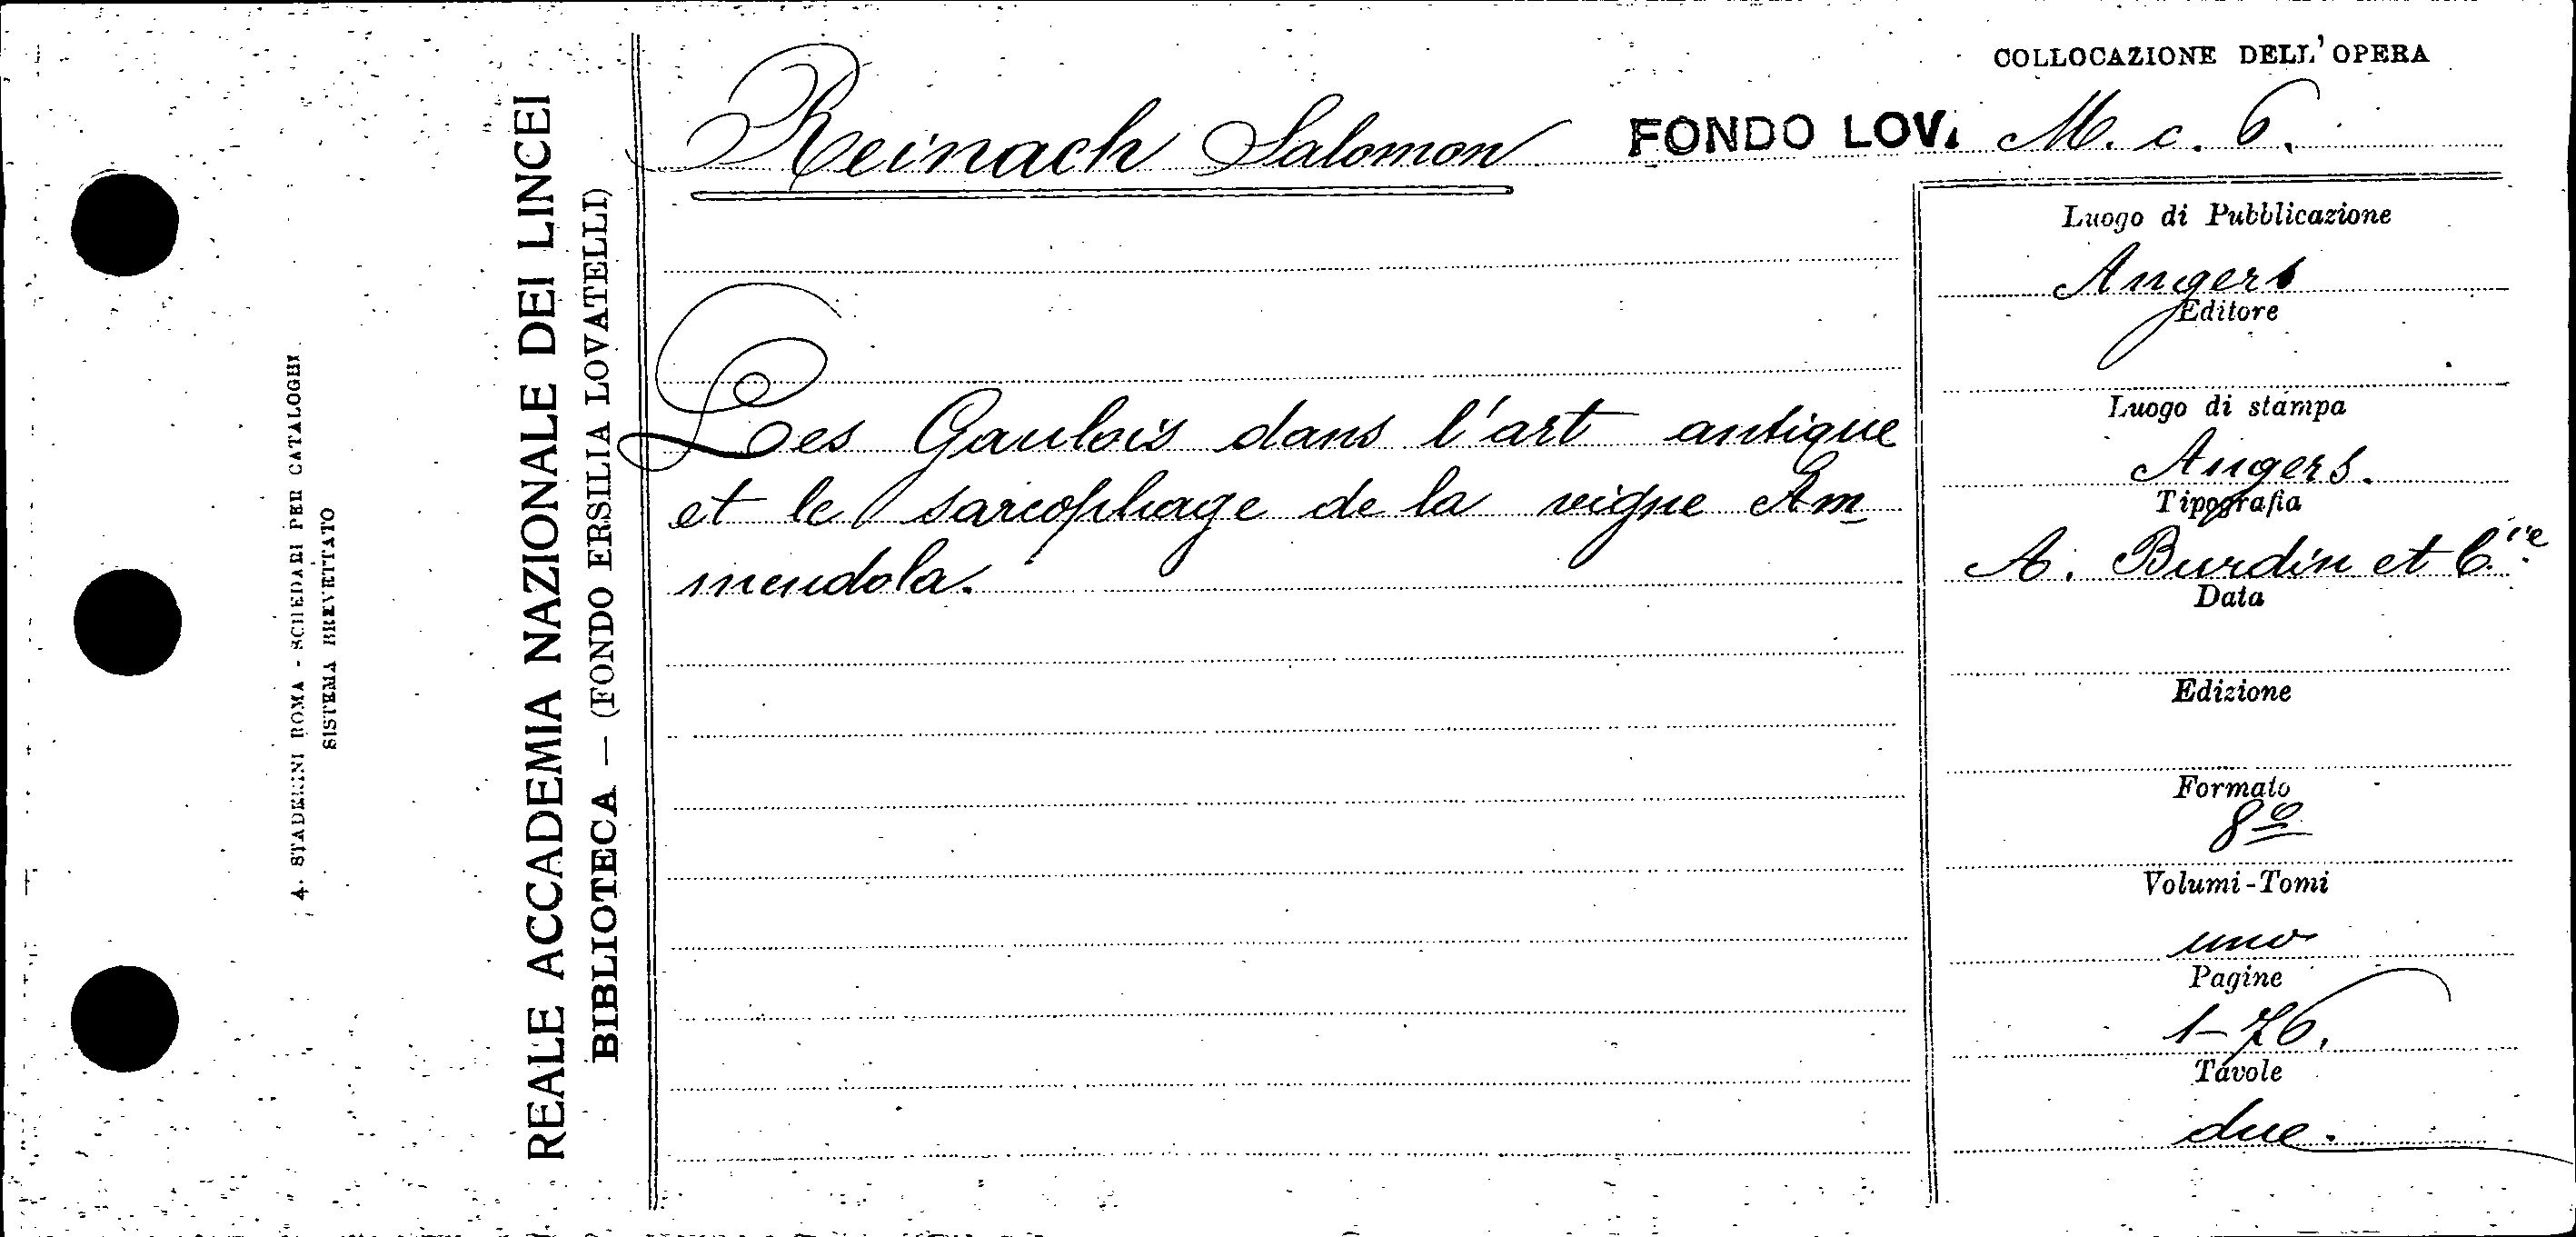 A. STADERINI ROMA - SCHEDARI PER CATALOGHI
SISTEMA BREVETTATO
REALE ACCADEMIA NAZIONALE DEI LINCEI
BIBLIOTECA — (FONDO ERSILIA LOVATELLI)
COLLOCAZIONE DELL'OPERA
Reinach Salomon FONDO LOV. M. c. 6.
Les Gaulois dans l'art antique
et le sarcophage de la vigne Am-
mendola.
Luogo di Pubblicazione
Angers
Editore
Luogo di stampa
Angers.
Tipografia
A. Burdin et C.ie
Data
Edizione
Formato
8º
Volumi-Tomi
uno
Pagine
1-76.
Tavole
due.